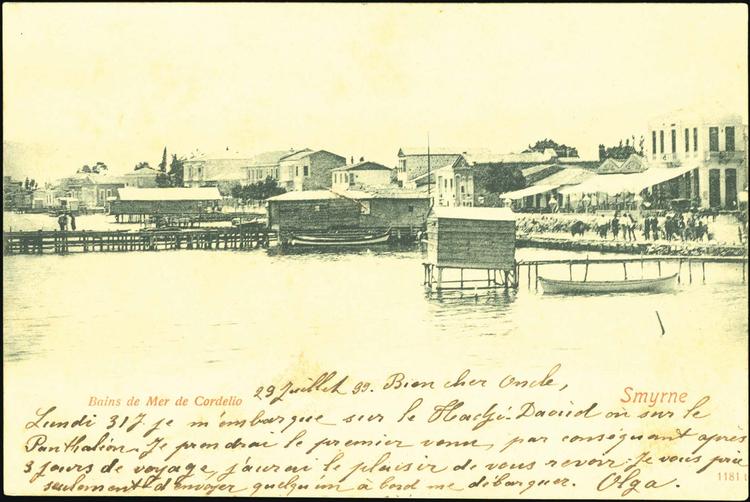 Bains de Mer de Cordelio
Smyrne
29 Juillet 99. Bien cher Oncle,
Lundi 31 J. je m'embarque sur le Hadji-Daoud ou sur le
Panthaléon. Je prendrai le premier venu, par conséquent après
3 jours de voyage, j'aurai le plaisir de vous revoir. Je vous prie
seulement d'envoyer quelqu'un à bord me débarquer. Olga.
1181